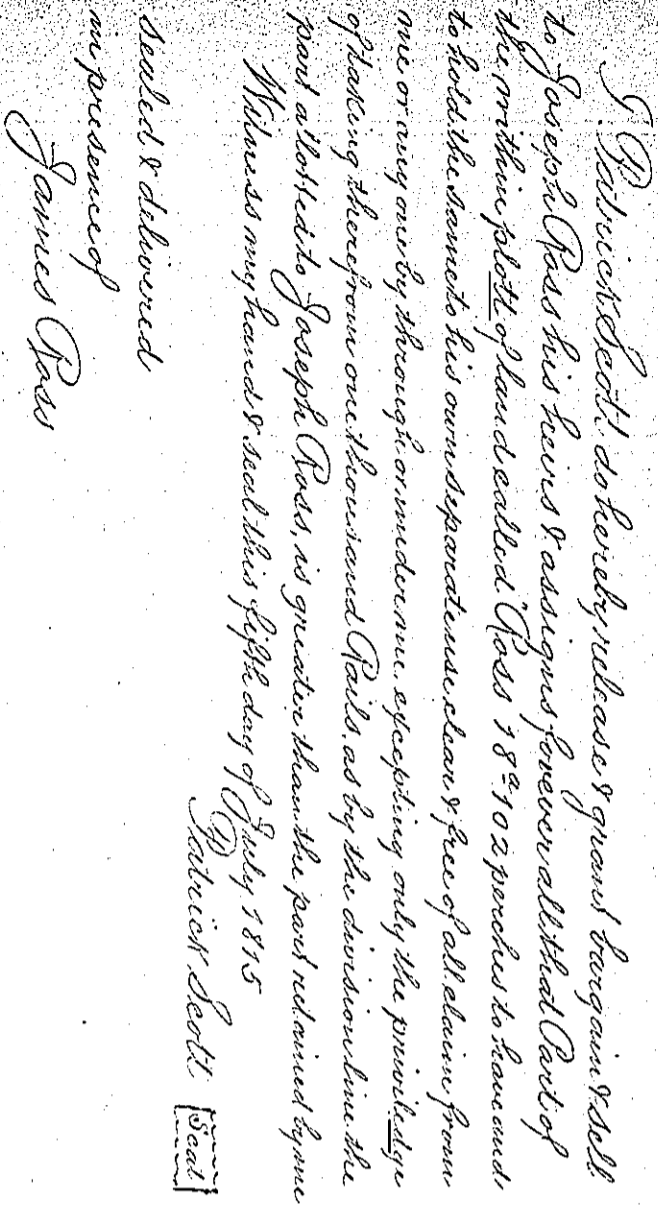 I. Patrick Scott. do hereby release & grant bargain & sell
to Joseph Ross his heirs & assigns forever all that Part of
the within plott of land called "Ross 78ᵃ 102 perches to have and
to hold the same to his own separate use, clear & free of all claim from
me or any one by through or under me, excepting only the priviledge
of taking therefrom one thousand Rails, as by the division line the
part allotted to Joseph Ross, is greater than the part retained by me
Witness my hand & seal this fifth day of July 1815
Patrick Scott [Seal]
Sealed & delivered
in presence of
James Ross